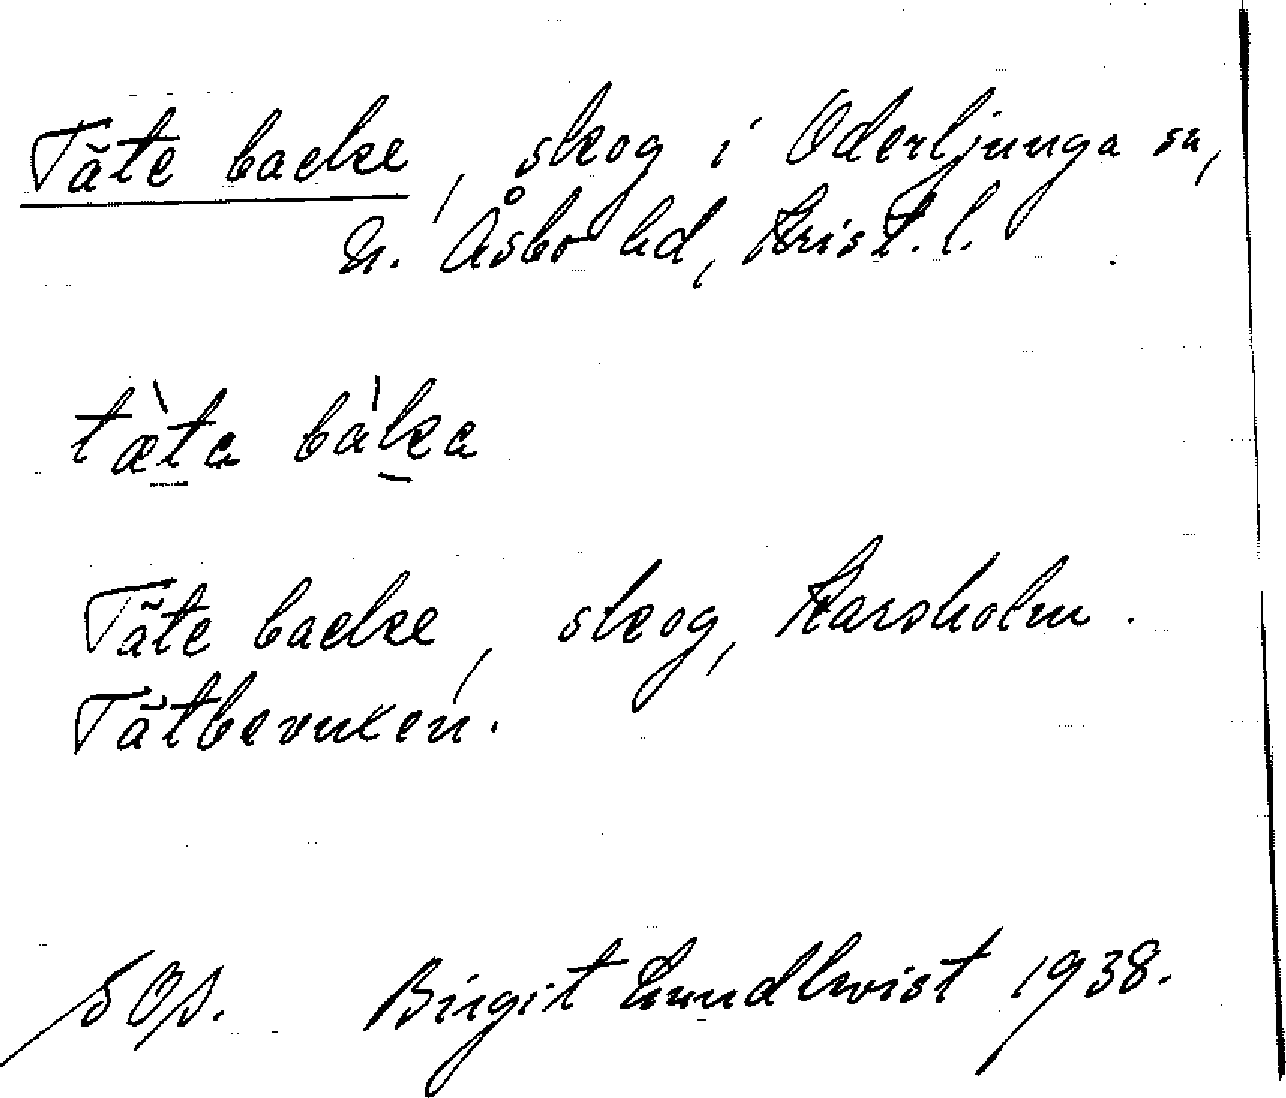 Täte backe, skog i Oderljunga sn,
N. Åsbo hd, Krist. l.
tæ̀ta bàka
Täte backe, skog, Karsholm.
Tätbevuxen.
SOp. Birgit Lundkvist 1938.